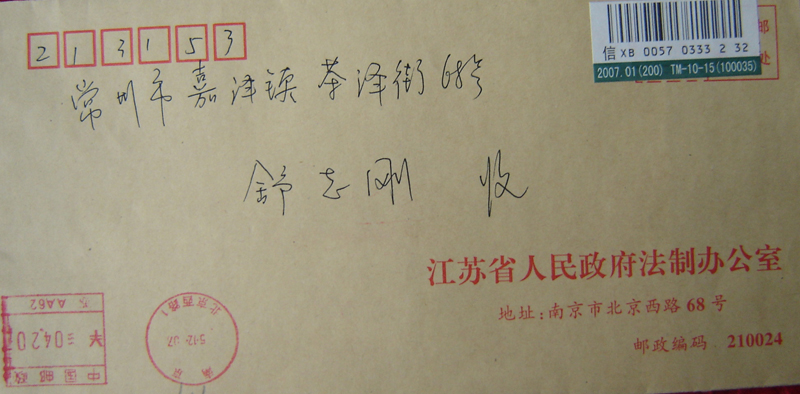 213153
信 XB 0057 0333 2 32
2007.01(200) TM-10-15(100035)
邮
处
常州市嘉泽镇茶泽街68号
舒志刚 收
江苏省人民政府法制办公室
地址:南京市北京西路 68 号
邮政编码 210024
苏 AA62
≡0420
中国邮政
北京西路1
5·12 07
南京